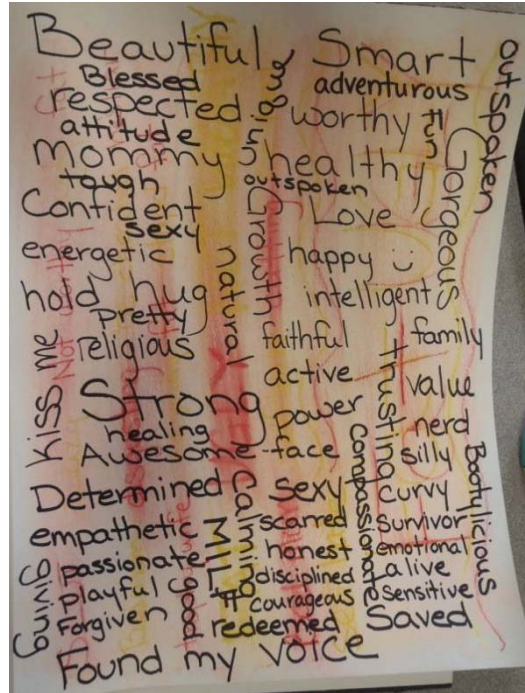 Beautiful
Smart
outspoken
Blessed
adventurous
respected
unique
worthy
attitude
fun
Gorgeous
mommy
healthy
tough
outspoken
Confident
Growth
Love
sexy
energetic
natural
happy
hold
hug
intelligent
pretty
kiss me
religious
faithful
family
active
trusting
value
Strong
power
nerd
healing
Awesome
face
silly
Bootylicious
Determined
calming
sexy
compassionate
curvy
empathetic
MILF
scarred
Survivor
passionate
honest
emotional
giving
playful
good
disciplined
alive
Forgiven
courageous
Sensitive
redeemed
Saved
Found my voice